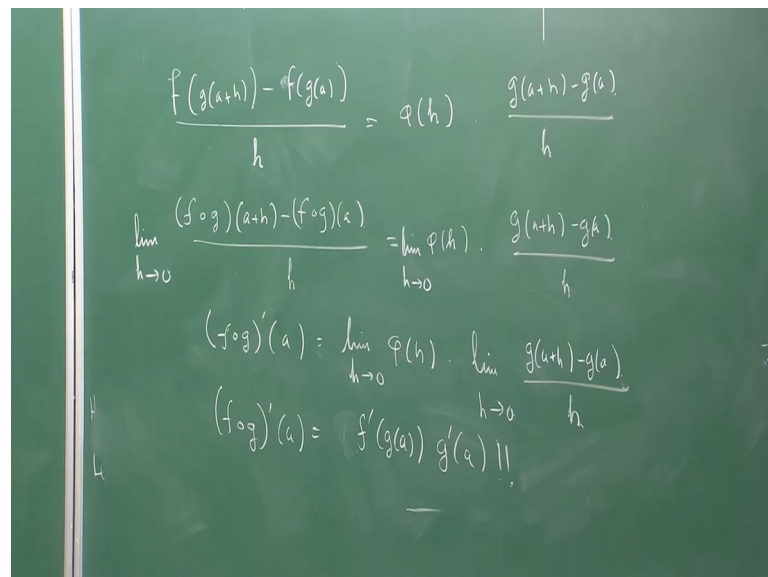 f(g(a+h)) - f(g(a)) / h = φ(h) . g(a+h) - g(a) / h
lim h→0 (f∘g)(a+h) - (f∘g)(a) / h = lim h→0 φ(h) . g(a+h) - g(a) / h
(f∘g)'(a) = lim h→0 φ(h) . lim h→0 g(a+h) - g(a) / h
(f∘g)'(a) = f'(g(a)) g'(a) !!